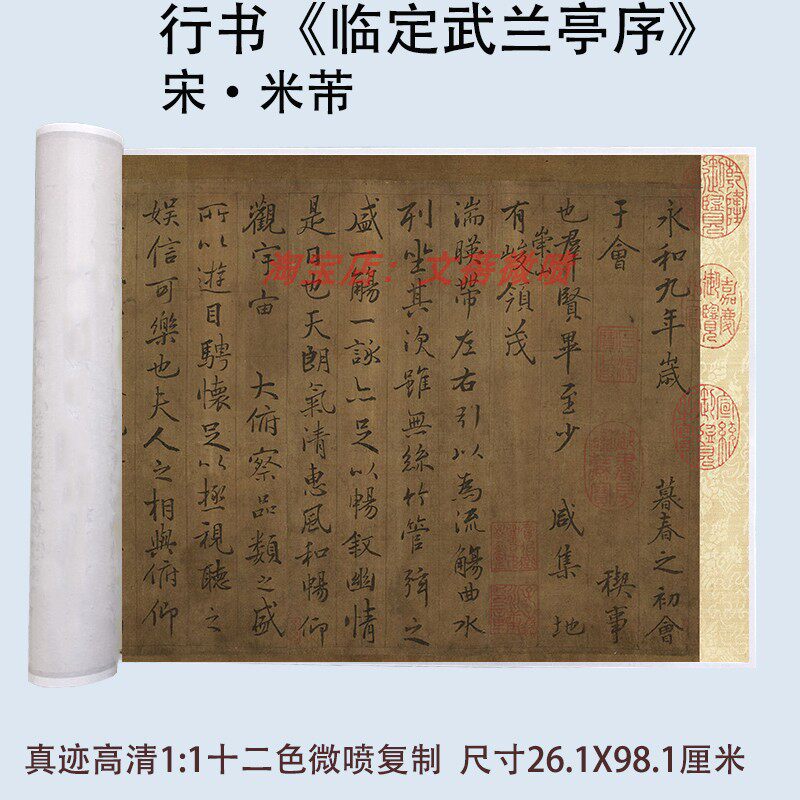 行书《临定武兰亭序》
宋·米芾
永和九年歲 暮春之初會
于會 、 稧事
也羣賢畢至少 咸集地
有崇山峻領茂
湍暎帶左右引以為流觴曲水
列坐其次雖無絲竹管弦之
盛一觴一詠亦足以暢敘幽情
是日也天朗氣清惠風和暢仰
觀宇宙 大俯察品類之盛
所以遊目騁懷足以極視聽之
娛信可樂也夫人之相與俯仰
淘宝店：文
嘉慶
御覽
宣統
真迹高清1:1十二色微喷复制 尺寸26.1X98.1厘米